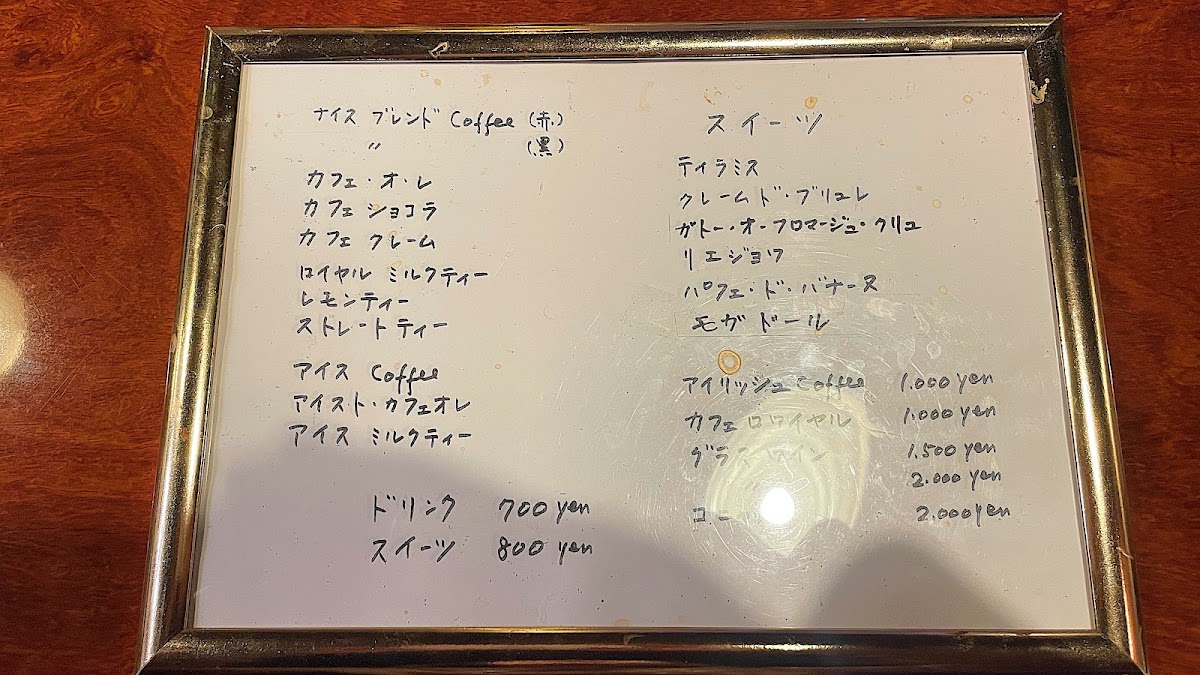 ナイス ブレンド Coffee (赤)
〃 (黒)
カフェ・オ・レ
カフェ ショコラ
カフェ クレーム
ロイヤル ミルクティー
レモンティー
ストレートティー
アイス Coffee
アイスト・カフェオレ
アイス ミルクティー
ドリンク 700 yen
スイーツ 800 yen
スイーツ
ティラミス
クレームド・ブリュレ
ガトー・オーフロマージュ・クリュ
リエジョワ
パフェ・ド・バナーヌ
モガドール
アイリッシュCoffee 1.000 yen
カフェロワイヤル 1.000 yen
グラスワイン 1.500 yen
2.000 yen
2.000 yen